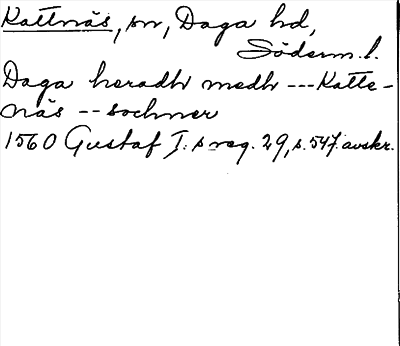 Kattnäs, sn, Daga hd,
Söderm. l.
Daga heradh medh --- Katte-
näs -- sochner
1560 Gustaf I:s reg. 29, s. 547. avskr.